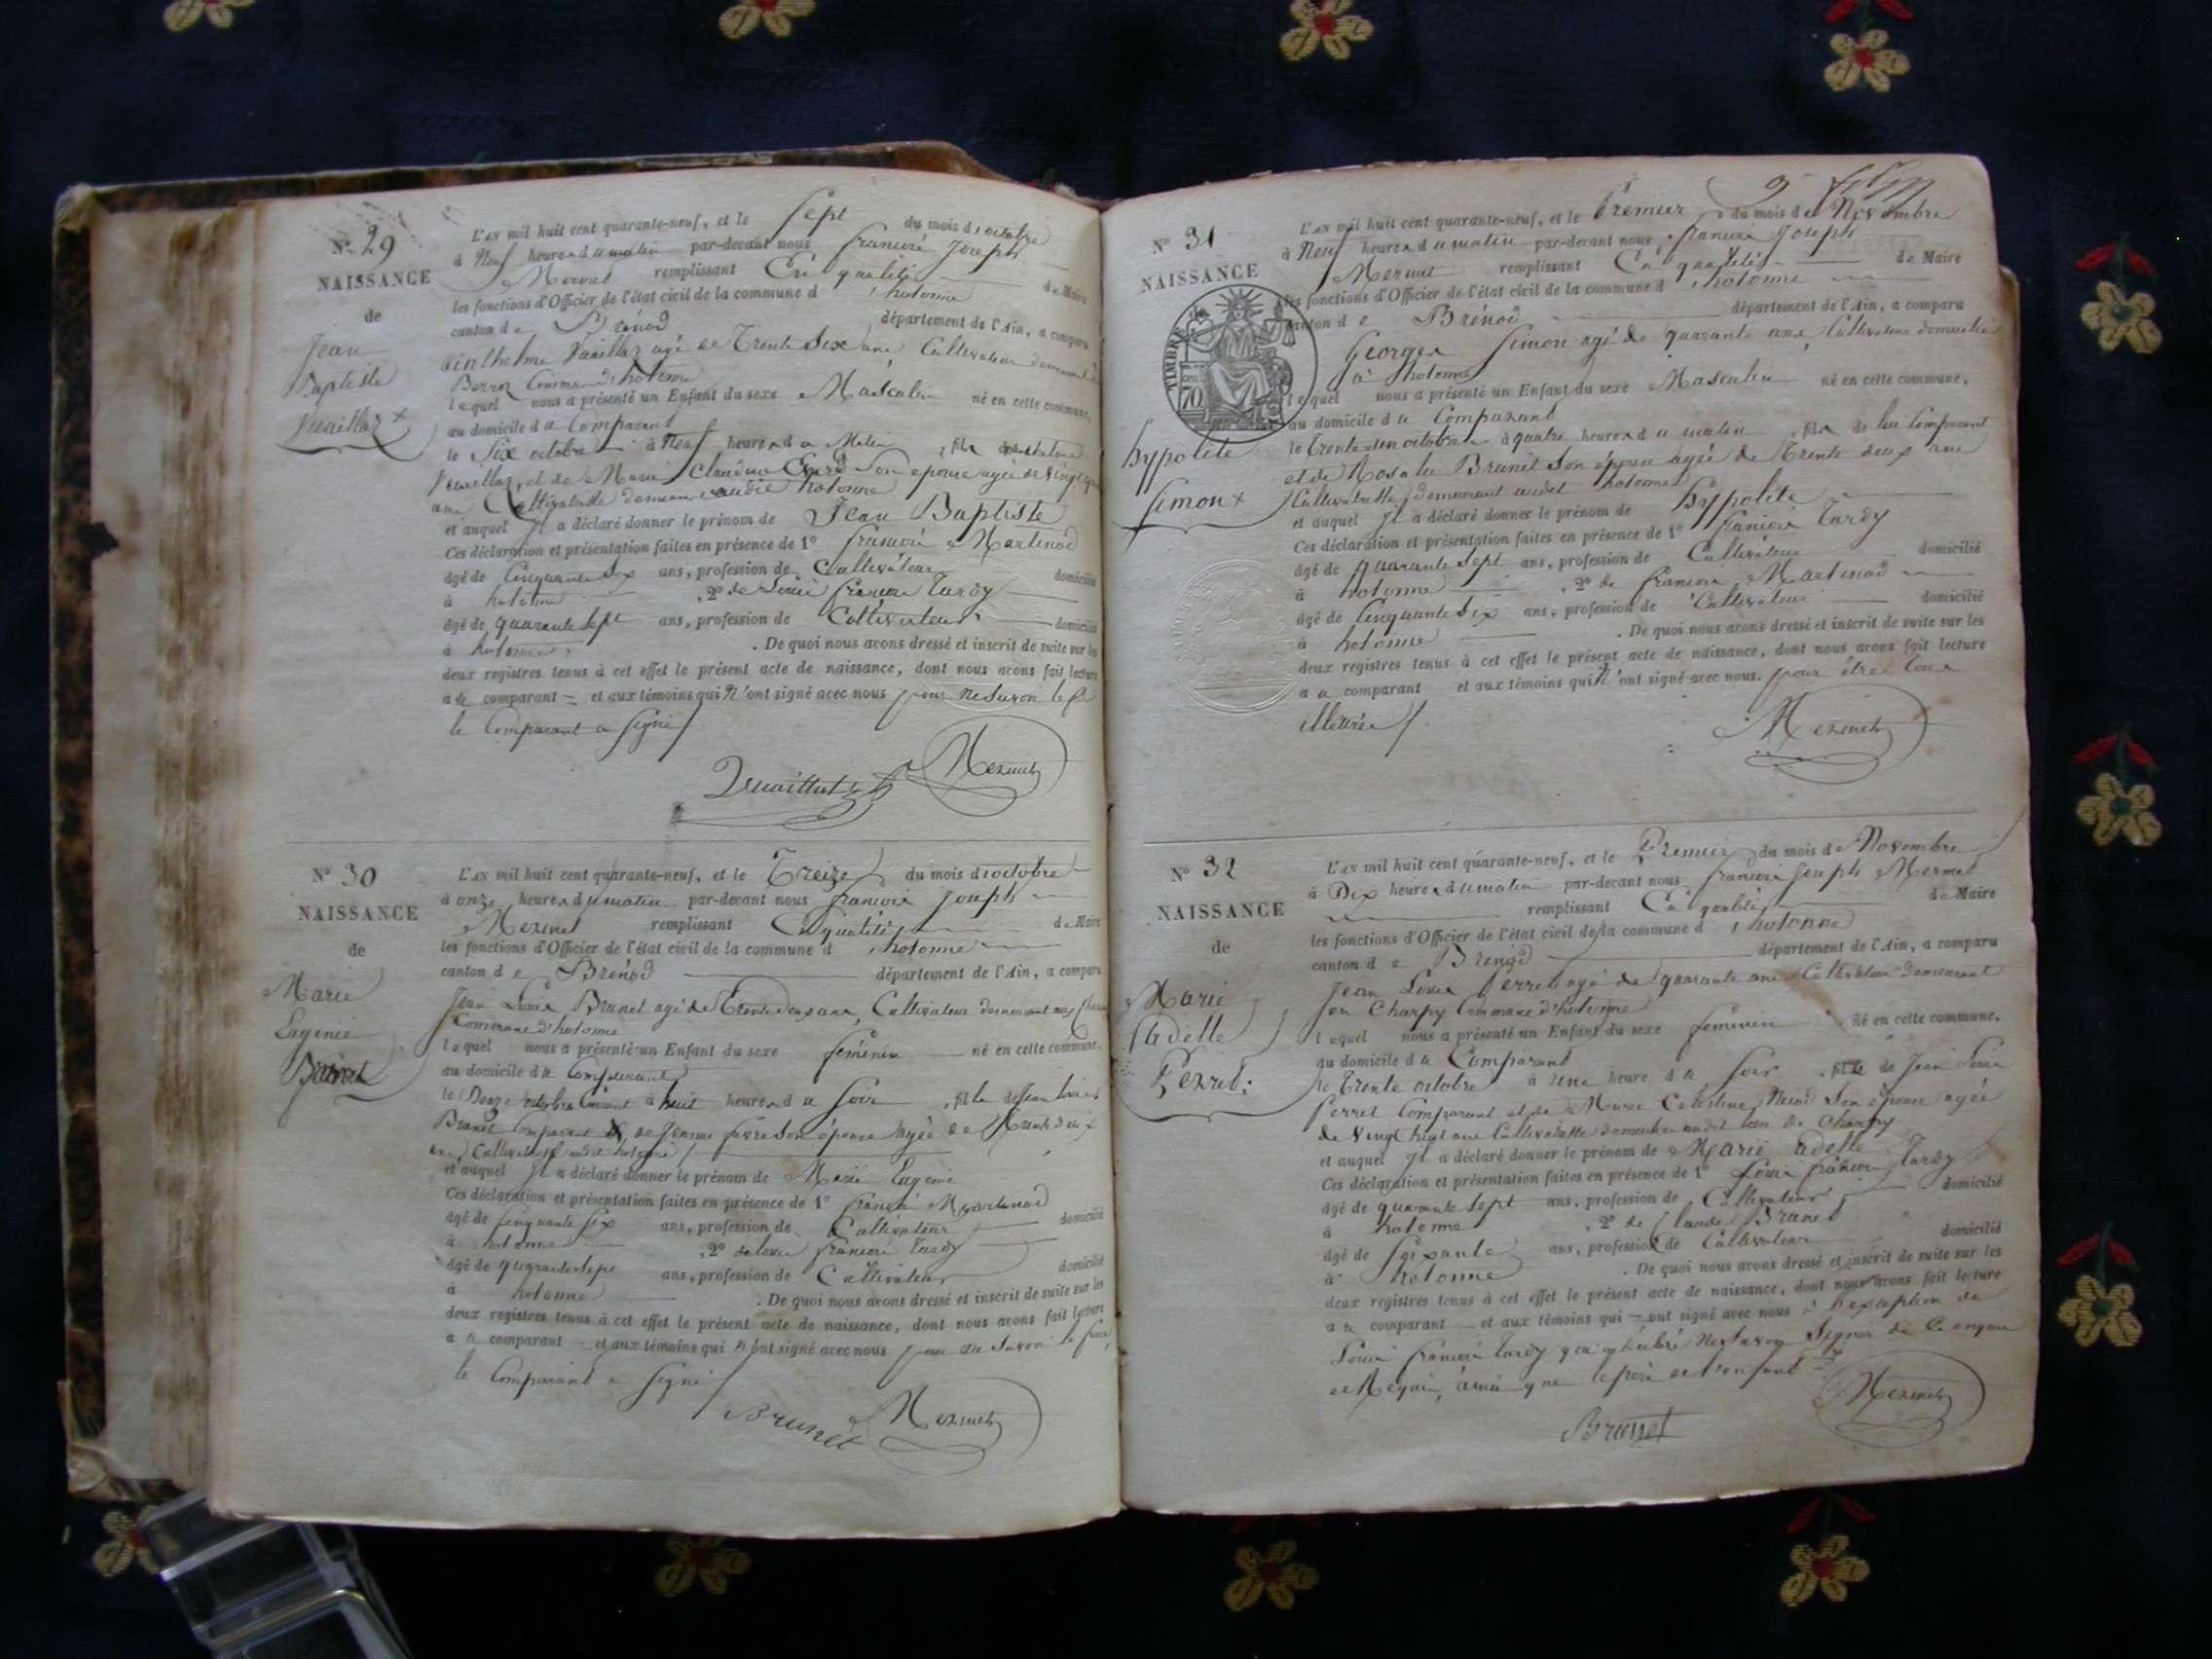 N° 29
NAISSANCE
de
Jean
Baptiste
Vuaillaz
L'AN mil huit cent quarante-neuf, et le Sept du mois d'octobre
à Neuf heures du matin par-devant nous françois Joseph
Mermet remplissant En qualité de Maire
les fonctions d'Officier de l'état civil de la commune d'hotonne
canton de Brénod département de l'Ain, a comparu
Anthelme Vuaillaz agé de Trente Six ans Cultivateur
Commune d'hotonne
lequel nous a présenté un Enfant du sexe Masculin né en cette commune,
au domicile du Comparant
le Six octobre à Neuf heures du Matin, fils
Vuaillaz, et de Marie Claudine son épouse agée de Vingt
ans Cultivatrice audit hotonne
et auquel Il a déclaré donner le prénom de Jean Baptiste
Ces déclaration et présentation faites en présence de 1° françois Martinod
âgé de Cinquante Six ans, profession de Cultivateur domicilié
à hotonne, 2° de Louis françois Tardy
âgé de quarante Sept ans, profession de Cultivateur domicilié
à hotonne. De quoi nous avons dressé et inscrit de suite sur les
deux registres tenus à cet effet le présent acte de naissance, dont nous avons fait lecture
au comparant et aux témoins qui N'ont signé avec nous pour ne Savoir le f
le Comparant a signé
Mermet
N° 30
NAISSANCE
de
Marie
Eugenie
Brunet
L'AN mil huit cent quarante-neuf, et le Treize du mois d'octobre
à onze heures du matin par-devant nous françois Joseph
Mermet remplissant En qualité de Maire
les fonctions d'Officier de l'état civil de la commune d'hotonne
canton de Brénod département de l'Ain, a comparu
Jean Louis Brunet agé de Trente deux ans, Cultivateur demeurant
Commune d'hotonne
lequel nous a présenté un Enfant du sexe féminin né en cette commune,
au domicile du Comparant
le Douze octobre Courant à huit heures du Soir, fille de Jean Louis
Brunet Comparant et de Jeanne favre Son épouse agée de Trente deux
ans Cultivatrice audit hotonne
et auquel Il a déclaré donner le prénom de Marie Eugenie
Ces déclaration et présentation faites en présence de 1° françois Martinod
âgé de Cinquante Six ans, profession de Cultivateur domicilié
à hotonne, 2° de Louis françois Tardy
âgé de quarante Sept ans, profession de Cultivateur domicilié
à hotonne. De quoi nous avons dressé et inscrit de suite sur les
deux registres tenus à cet effet le présent acte de naissance, dont nous avons fait lecture
au comparant et aux témoins qui N'ont signé avec nous pour ne Savoir le faire,
le Comparant a signé
Brunet Mermet
N° 31
NAISSANCE
TIMBRE
70
hypolite
Simon
L'AN mil huit cent quarante-neuf, et le Premier du mois de Novembre
à Neuf heures du matin par-devant nous françois Joseph
Mermet remplissant En qualité de Maire
les fonctions d'Officier de l'état civil de la commune d'hotonne
canton de Brénod département de l'Ain, a comparu
Georges Simon agé de quarante ans, Cultivateur domicilié
à hotonne
lequel nous a présenté un Enfant du sexe Masculin né en cette commune,
au domicile du Comparant
le Trente-un octobre à quatre heures du matin, fils de lui Comparant
et de Rosalie Brunet Son épouse agée de Trente deux ans
Cultivatrice, demeurant audit hotonne
et auquel Il a déclaré donner le prénom de hypolite
Ces déclaration et présentation faites en présence de 1° françois Tardy
âgé de quarante Sept ans, profession de Cultivateur domicilié
à hotonne, 2° de françois Martinod
âgé de Cinquante Six ans, profession de Cultivateur domicilié
à hotonne. De quoi nous avons dressé et inscrit de suite sur les
deux registres tenus à cet effet le présent acte de naissance, dont nous avons fait lecture
au comparant et aux témoins qui N'ont signé avec nous. pour être Tous
illétrés
Mermet
N° 32
NAISSANCE
de
Marie
Adelle
Perret
L'AN mil huit cent quarante-neuf, et le Premier du mois de Novembre
à Dix heures du matin par-devant nous françois Joseph Mermet
remplissant En qualité de Maire
les fonctions d'Officier de l'état civil de la commune d'hotonne
canton de Brénod département de l'Ain, a comparu
Jean Louis Perret agé de quarante ans Cultivateur demeurant
Charpy Commune d'hotonne
lequel nous a présenté un Enfant du sexe féminin né en cette commune,
au domicile du Comparant
le Trente octobre à une heure du Soir, fille de Jean Louis
Perret Comparant et de Marie Celestine Son épouse agée
de Vingt huit ans Cultivatrice audit lieu de Charpy
et auquel Il a déclaré donner le prénom de Marie Adelle
Ces déclaration et présentation faites en présence de 1° Louis françois Tardy
âgé de quarante Sept ans, profession de Cultivateur domicilié
à hotonne, 2° de Claude Brunet
âgé de Soixante ans, profession de Cultivateur domicilié
à hotonne. De quoi nous avons dressé et inscrit de suite sur les
deux registres tenus à cet effet le présent acte de naissance, dont nous avons fait lecture
au comparant et aux témoins qui ont signé avec nous à l'exception de
Louis françois Tardy qui a déclaré Ne Savoir Signer de Ce enquis
et Requis, ainsi que le père de l'enfant
Mermet
Brunet